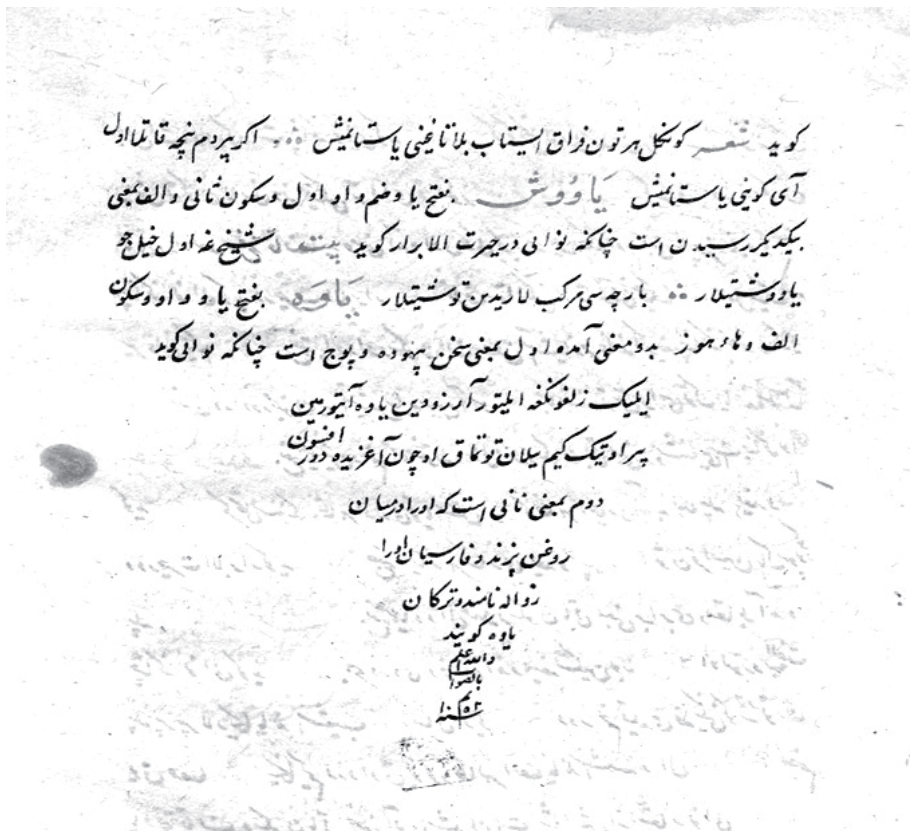 کوید شعر کونکل هر تون فراق ایستاب بلا تاغینی یاستانمیش اکر بیردم نیچه قاتلا اول
آی کوینی یاستانمیش یاووش بفتح یا وضم واو اول وسکون ثانی والف بمعنی
بیکدیکر رسیدن است چنانکه نوائی در حیرت الابرار کوید بیت شیخ غه اول خیل چو
یاووشتیلار بارچه سی مرکب لاریدن توشتیلار یاوه بفتح یا و واو وسکون
الف وهاء هوز بدو معنی آمده اول بمعنی سخن بیهوده وپوچ است چنانکه نوائی کوید
ایلیک زلفونکغه ایلیتور آرزودین یاوه آیتورمین
پیر اوتیک کیم ییلان توتماق اوچون آغزیده دور افسون
دوم بمعنی نانی است که اورا در میان
روغن پزند وفارسیان اورا
زواله نامند وترکان
یاوه کویند
والله اعلم
بالصواب